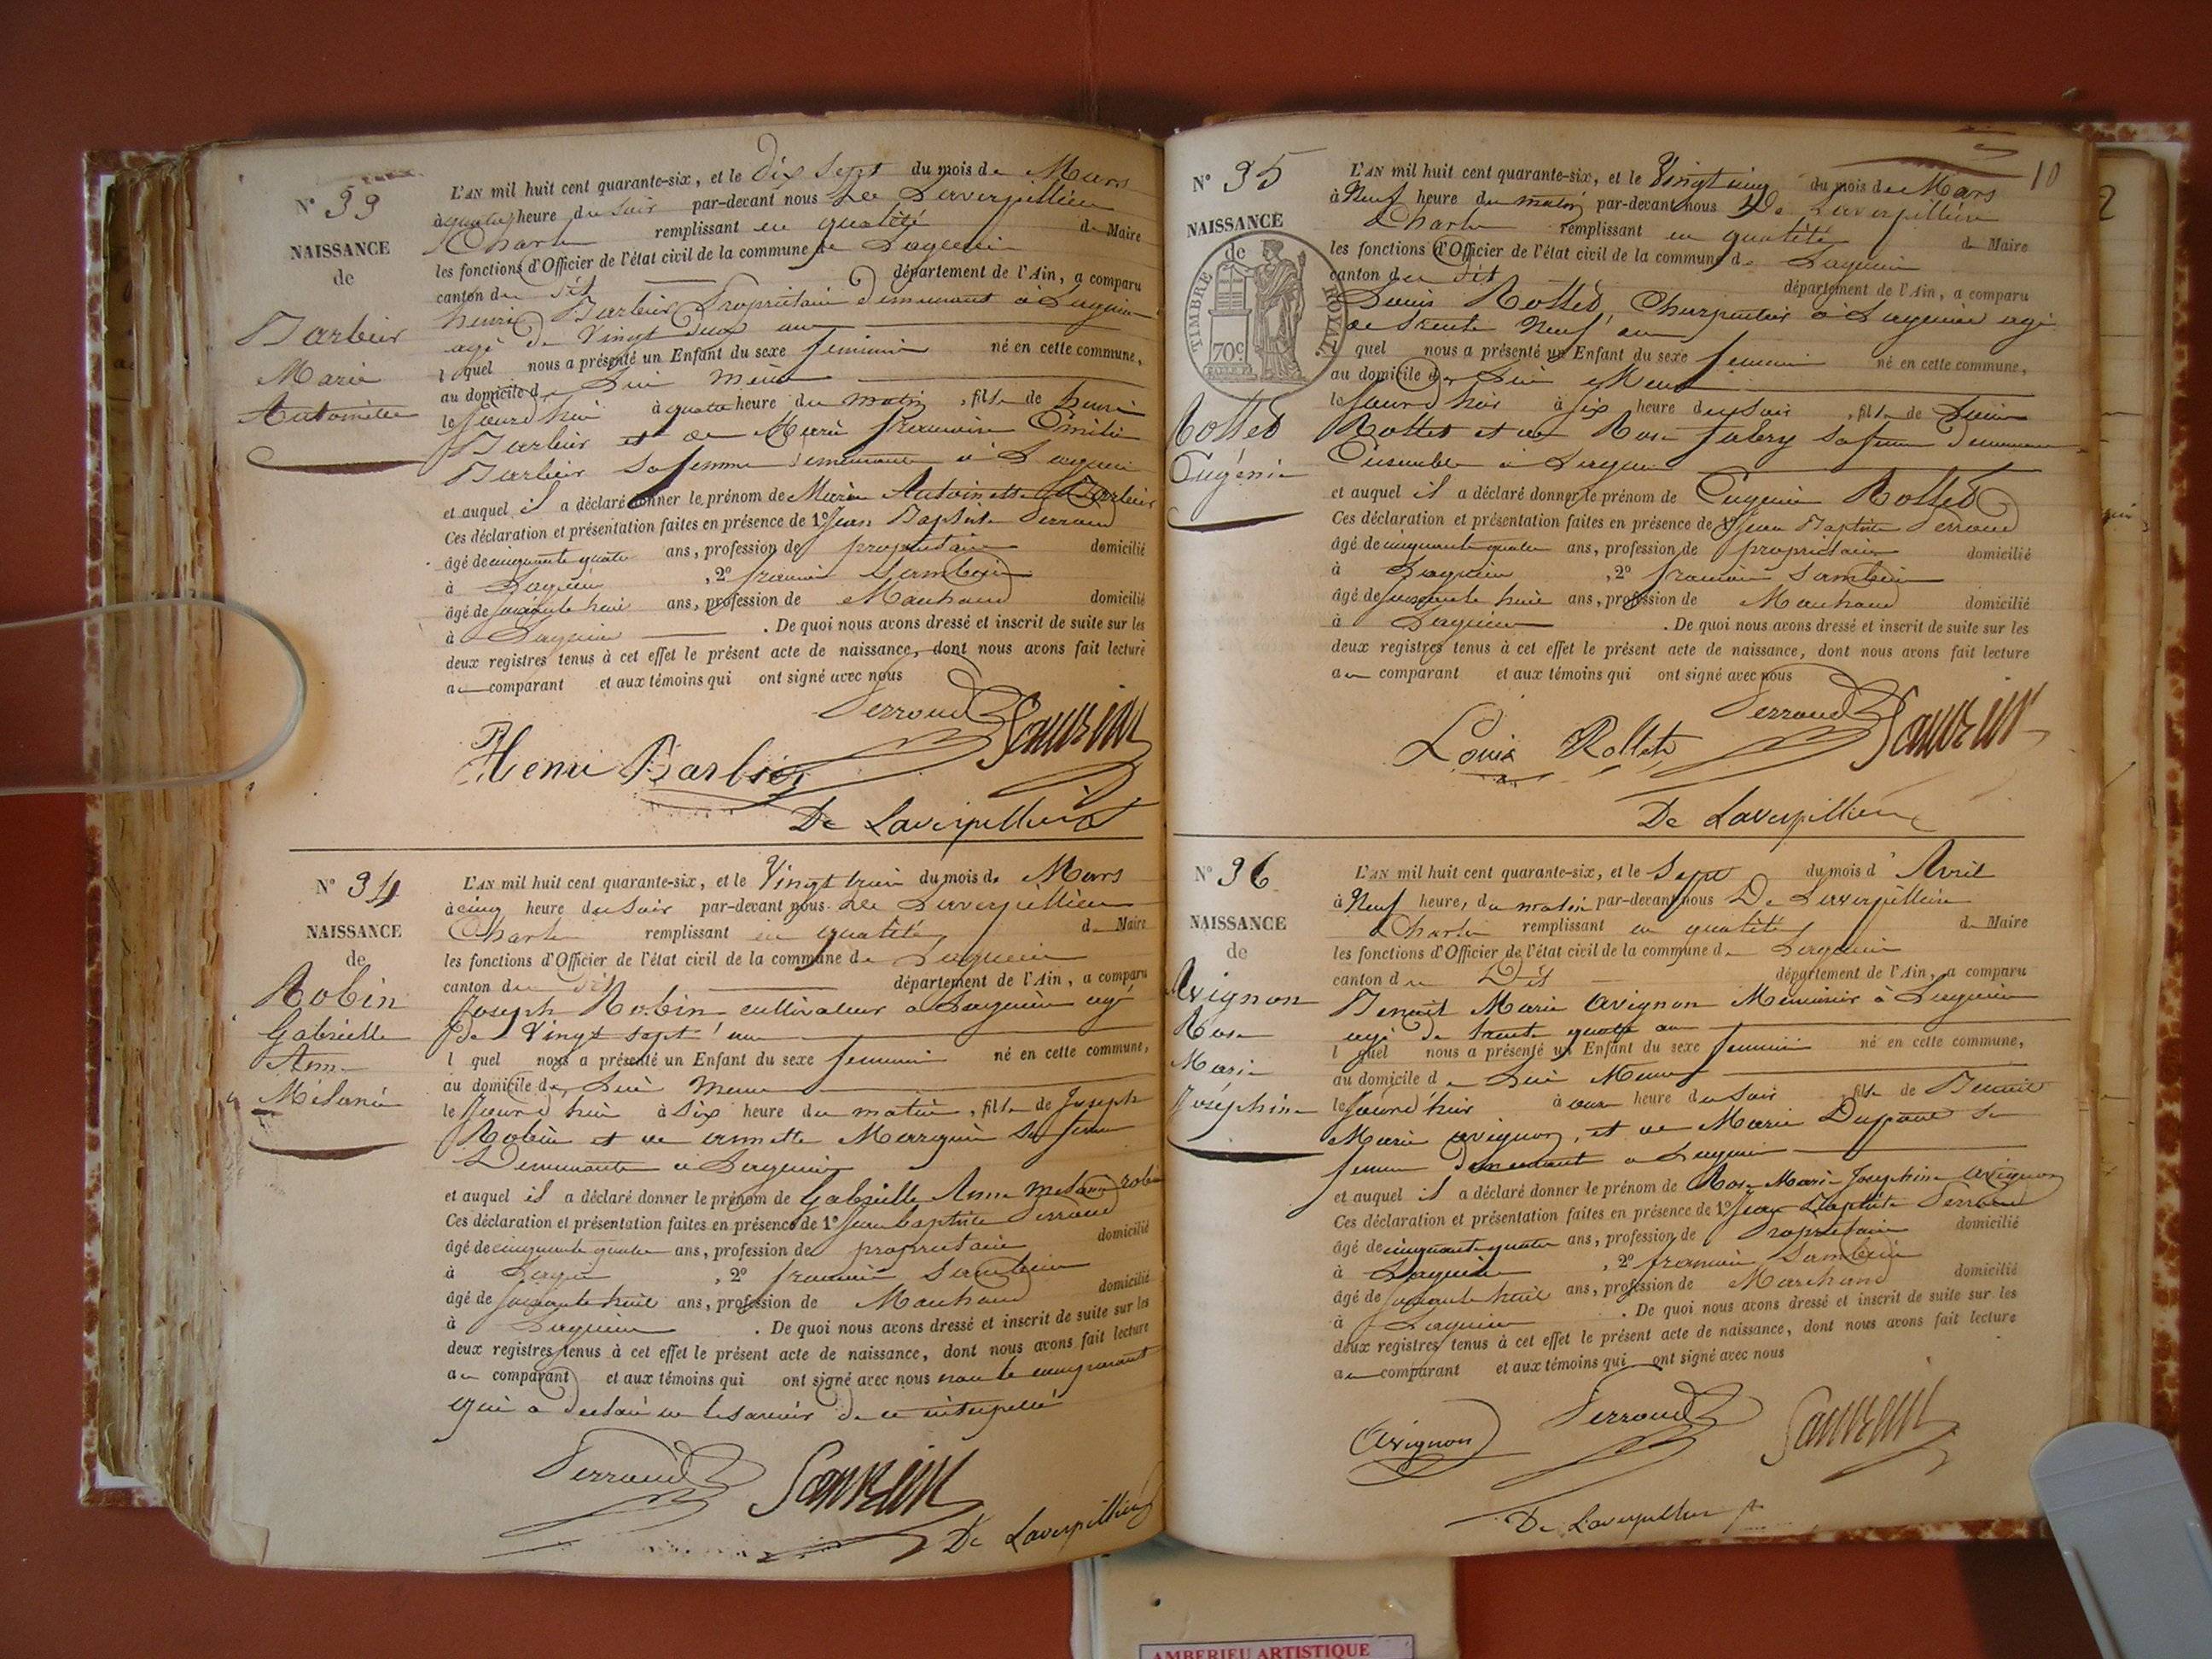 N° 33
NAISSANCE
de
Barbier
Marie
Antoinette
L'AN mil huit cent quarante-six, et le dix sept du mois de Mars
à quatre heure du Soir par-devant nous De Laverpillière
Charle remplissant en qualité de Maire
les fonctions d'Officier de l'état civil de la commune de Lagnieu
canton du dit département de l'Ain, a comparu
henri Barbier Propriétaire demeurant à Lagnieu
agé de Vingt deux ans
lequel nous a présenté un Enfant du sexe feminin né en cette commune,
au domicile de Lui même
le jourd'hui à quatre heure du matin, fille de henri
Barbier et de Marie francoise Emilie
Barbier sa femme demeurant à Lagnieu
et auquel il a déclaré donner le prénom de Marie Antoinette Barbier
Ces déclaration et présentation faites en présence de 1° Jean Baptiste Perroud
âgé de cinquante quatre ans, profession de propriétaire domicilié
à Lagnieu, 2° francois
âgé de soixante huit ans, profession de Marchand domicilié
à Lagnieu. De quoi nous avons dressé et inscrit de suite sur les
deux registres tenus à cet effet le présent acte de naissance, dont nous avons fait lecture
au comparant et aux témoins qui ont signé avec nous
Perroud
Henri Barbier
De Laverpillière
N° 34
NAISSANCE
de
Robin
Gabrielle
Anne
Mélanie
L'AN mil huit cent quarante-six, et le Vingt trois du mois de Mars
à cinq heure du Soir par-devant nous De Laverpillière
Charle remplissant en qualité de Maire
les fonctions d'Officier de l'état civil de la commune de Lagnieu
canton du dit département de l'Ain, a comparu
Joseph Robin cultivateur a Lagnieu agé
de Vingt sept ans
lequel nous a présenté un Enfant du sexe feminin né en cette commune,
au domicile de Lui meme
le jourd'hui à Six heure du matin, fille de Joseph
Robin et de annette sa femme
Demeurante a Lagnieu
et auquel il a déclaré donner le prénom de Gabrielle Anne melanie robin
Ces déclaration et présentation faites en présence de 1° Jean baptiste Perroud
âgé de cinquante quatre ans, profession de propriétaire domicilié
à Lagnieu, 2° francois
âgé de soixante huit ans, profession de Marchand domicilié
à Lagnieu. De quoi nous avons dressé et inscrit de suite sur les
deux registres tenus à cet effet le présent acte de naissance, dont nous avons fait lecture
au comparant et aux témoins qui ont signé avec nous non le comparant
qui a déclaré ne le savoir de ce interpellé
Perroud
De Laverpillière
10
N° 35
NAISSANCE
de
TIMBRE ROYAL
70c
Rollet
Eugénie
L'AN mil huit cent quarante-six, et le Vingt cinq du mois de Mars
à Neuf heure du matin par-devant nous De Laverpillière
Charle remplissant en qualité de Maire
les fonctions d'Officier de l'état civil de la commune de Lagnieu
canton du dit département de l'Ain, a comparu
Louis Rollet, Charpentier à Lagnieu agé
de trente Neuf ans
lequel nous a présenté un Enfant du sexe feminin né en cette commune,
au domicile de Lui Meme
le jourd'hui à six heure du Soir, fille de Louis
Rollet et de Rose sa femme demeurant
Ensemble à Lagnieu
et auquel il a déclaré donner le prénom de Eugenie Rollet
Ces déclaration et présentation faites en présence de 1° Jean Baptiste Perroud
âgé de cinquante quatre ans, profession de propriétaire domicilié
à Lagnieu, 2° francois
âgé de soixante huit ans, profession de Marchand domicilié
à Lagnieu. De quoi nous avons dressé et inscrit de suite sur les
deux registres tenus à cet effet le présent acte de naissance, dont nous avons fait lecture
au comparant et aux témoins qui ont signé avec nous
Perroud
Louis Rollet
De Laverpillière
N° 36
NAISSANCE
de
Avignon
Rose
Marie
Joséphine
L'AN mil huit cent quarante-six, et le Sept du mois d'Avril
à Neuf heure, du matin par-devant nous De Laverpillière
Charle remplissant en qualité de Maire
les fonctions d'Officier de l'état civil de la commune de Lagnieu
canton du Dit département de l'Ain, a comparu
Benoit Marie Avignon Menuisier à Lagnieu
agé de trente quatre ans
lequel nous a présenté un Enfant du sexe feminin né en cette commune,
au domicile de Lui Meme
le jourd'hui à heure du Soir fille de Benoit
Marie avignon, et de Marie sa
femme demeurant a Lagnieu
et auquel il a déclaré donner le prénom de Rose Marie Josephine avignon
Ces déclaration et présentation faites en présence de 1° Jean Baptiste Perroud
âgé de cinquante quatre ans, profession de Propriétaire domicilié
à Lagnieu, 2° francois
âgé de soixante huit ans, profession de Marchand domicilié
à Lagnieu. De quoi nous avons dressé et inscrit de suite sur les
deux registres tenus à cet effet le présent acte de naissance, dont nous avons fait lecture
au comparant et aux témoins qui ont signé avec nous
Avignon
Perroud
De Laverpillière
AMBERIEU ARTISTIQUE